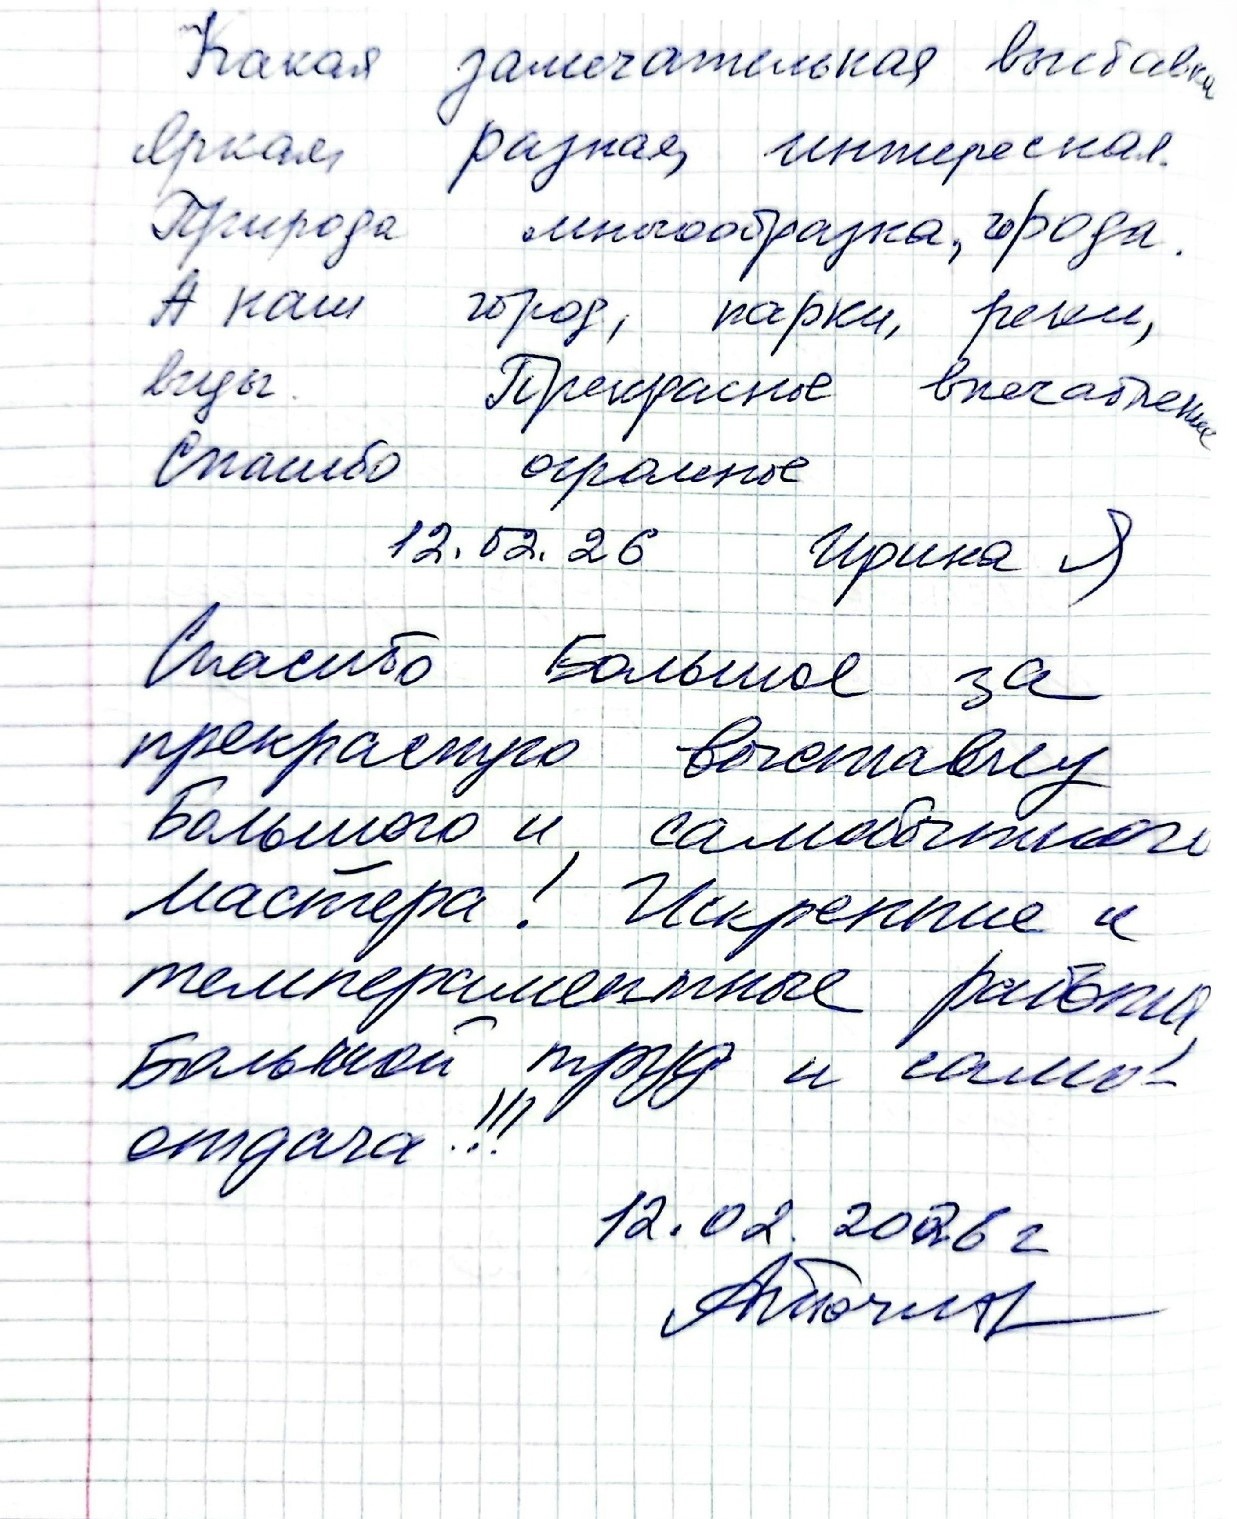 Какая замечательная выставка
Яркая, разная, интересная.
Природа многообразна, города.
А наш город, парки, реки,
виды. Прекрасное впечатление
Спасибо огромное
12.02.26 Ирина
Спасибо Большое за
прекрасную выставку
Большого и самобытного
Мастера! Искренние и
темпераментные работы,
Большой труд и само-
отдача!!!
12.02.2026 г